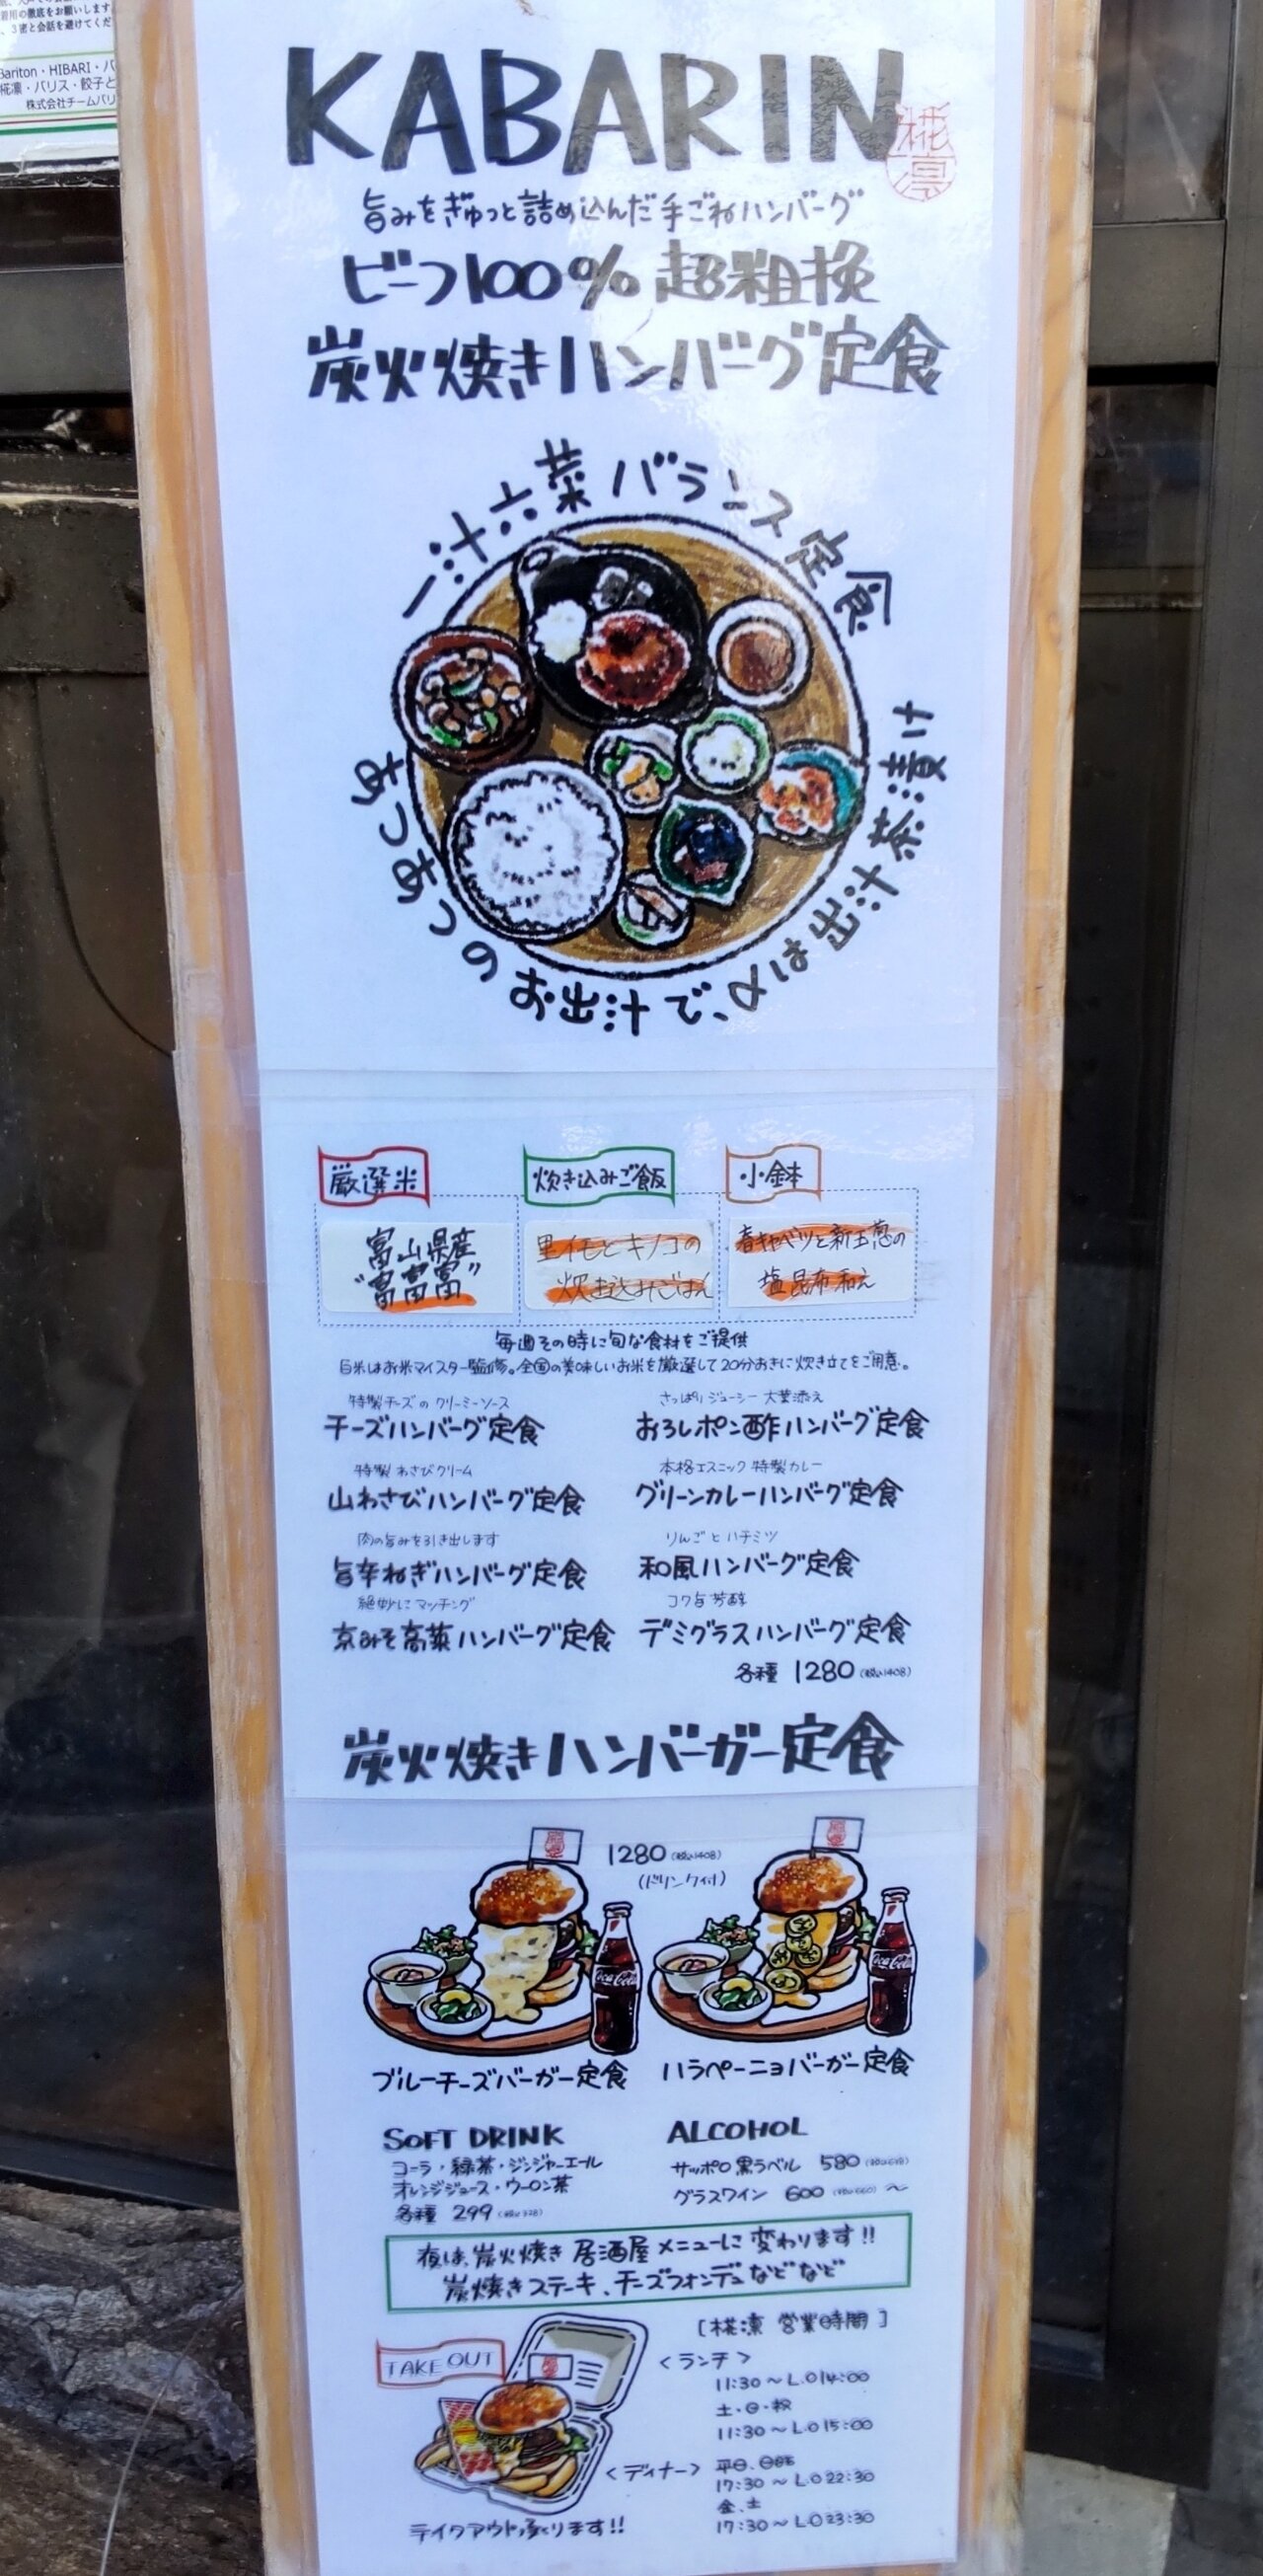 着用の徹底をお願いします
、3密と会話を避けてくだ
Bariton・HIBARI・バ
椛凛・バリス・餃子と
株式会社チームバリ
KABARIN
椛凛
旨みをぎゅっと詰め込んだ手ごねハンバーグ
ビーフ100%超粗挽
炭火焼きハンバーグ定食
一汁六菜バランス定食
あつあつのお出汁で、〆は出汁茶漬け
厳選米
炊き込みご飯
小鉢
富山県産
"富富富"
里イモとキノコの
炊き込みごはん
春キャベツと新玉葱の
塩昆布和え
毎週その時に旬な食材をご提供
白米はお米マイスター監修。全国の美味しいお米を厳選して20分おきに炊き立てをご用意。
特製チーズのクリーミーソース
チーズハンバーグ定食
さっぱりジューシー 大葉添え
おろしポン酢ハンバーグ定食
特製わさびクリーム
山わさびハンバーグ定食
本格エスニック 特製カレー
グリーンカレーハンバーグ定食
肉の旨みを引き出します
旨辛ねぎハンバーグ定食
りんごとハチミツ
和風ハンバーグ定食
絶妙にマッチング
京みそ高菜ハンバーグ定食
コク旨芳醇
デミグラスハンバーグ定食
各種 1280(税込1408)
炭火焼きハンバーガー定食
1280(税込1408)
(ドリンク付)
Coca-Cola
Coca-Cola
ブルーチーズバーガー定食
ハラペーニョバーガー定食
SOFT DRINK
コーラ・緑茶・ジンジャーエール
オレンジジュース・ウーロン茶
各種 299(税込328)
ALCOHOL
サッポロ黒ラベル 580
グラスワイン 600(税込660)〜
夜は、炭火焼き居酒屋メニューに変わります!!
炭焼きステーキ、チーズフォンデュなどなど
TAKE OUT
テイクアウト承ります!!
[椛凛 営業時間]
<ランチ>
11:30〜L.O14:00
土・日・祝
11:30〜L.O15:00
<ディナー>
平日、日祝
17:30〜L.O22:30
金、土
17:30〜L.O23:30